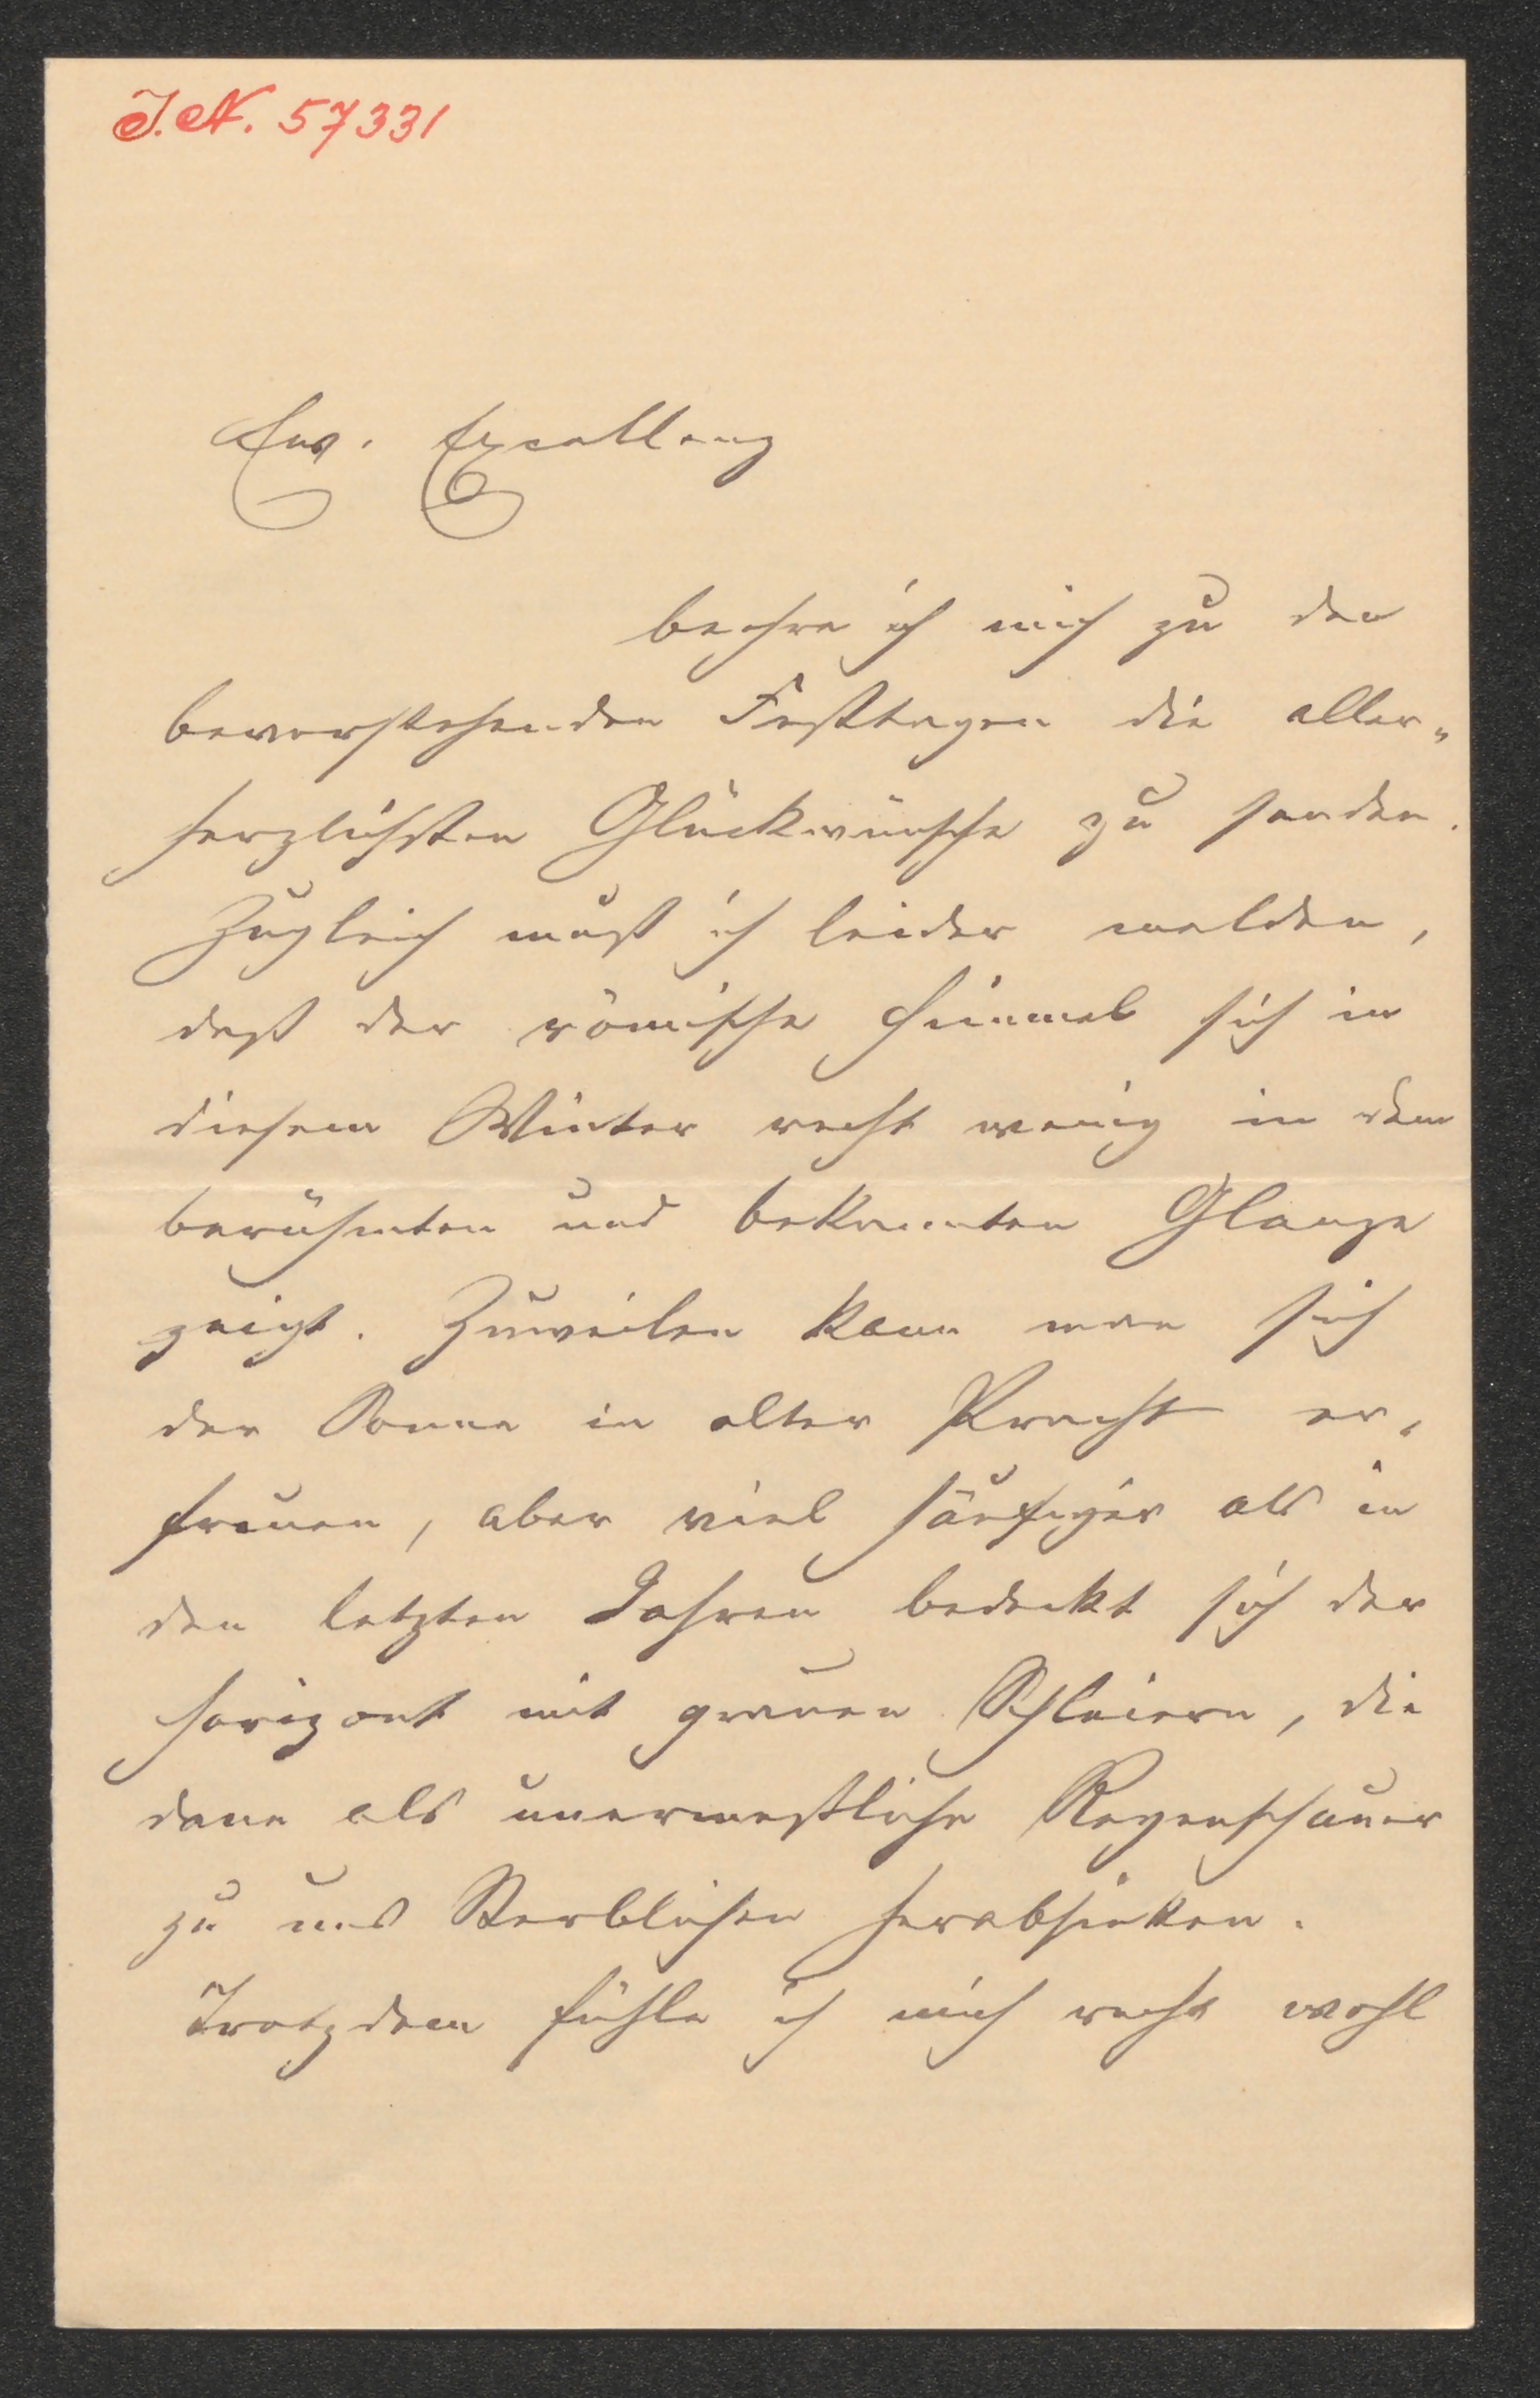 J.N. 57331
Ew. Excellenz
beehre ich mich zu den
bevorstehenden Festtagen die aller„
herzlichsten Glückwünsche zu senden.
Zugleich muß ich leider melden,
daß der römische Himmel sich in
diesem Winter recht wenig in dem
berühmten und bekannten Glanze
zeigt. Zuweilen kann man sich
der Sonne in alter Pracht er„
freuen, aber viel häufiger als in
den letzten Jahren bedeckt sich der
Horizont mit grauen Schleiern, die
dann als unermeßliche Regenschauer
zu uns Sterblichen herabsinken.
Trotzdem fühle ich mich recht wohl